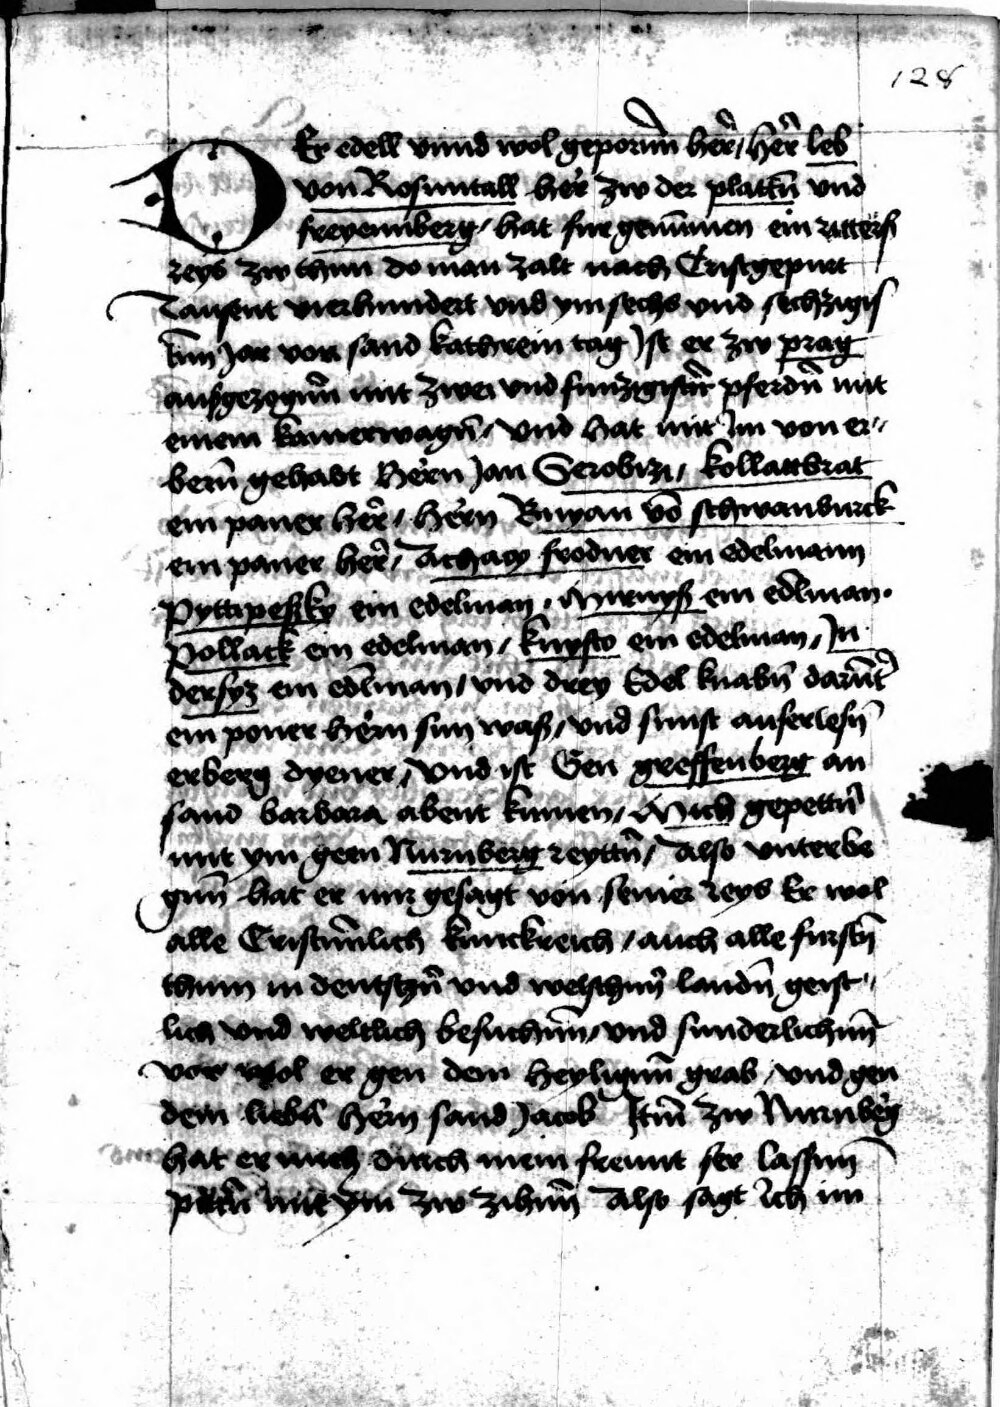 128
DEr edell vnnd wol geporũn her̃ / her̃ leb
von Rosumtall her̃ zw der plattñ vnd
freyennberg / hat fur genũmen ein ritters
reys zw thun do man zalt nach Cristgepurt
Tausent vierhundert vnd ym sechs vnd sechzigis
tñn Jar vor sand kathrein tag Jst er zw prag
außgezogũn mit zwei vnd funzigistñ pferdñ mit
einem kamerwagñ / vnd hat mit Jm von er⸗
berñ gehabt herñ Jan Serobizi / kollattbrat
ein paner her̃ / herñ Buryan võ schwanburck
ein paner her̃ / Achacy frodner ein edelmann
Pyttipesky ein edelman / Mirnyß ein edlman .
Pollack ein edelman / knysto ein edelman / Jn
dersyz ein edlman / vnd drey Edel knabñ darũt̃
ein poner herñ sun waß / vnd sunst auserlesñ
erberg dyener / Vnd ist Gen greffenberg an
sand barbara abent kumen / Mich gepettñ
mit ym geen Nurnberg reyttñ / Also vnterbe
gũn hat er mir gesagt von seiner reys Er wol
alle Cristũnlich kunckreich / auch alle furstñ
thum in deutstzñ vnd welschũn landñ geist⸗
lich vnd weltlich besuchũn / vnd sunderlichũn
vor wol er gen dem heyligũn grab / vnd gen
dem liebñ herñ sand Jacob Jtm̃ zw Nurnbẽg
hat er mich durch mein freunt ser lassũn
pittñ mit ym zw zihũn Also sagt Ich im